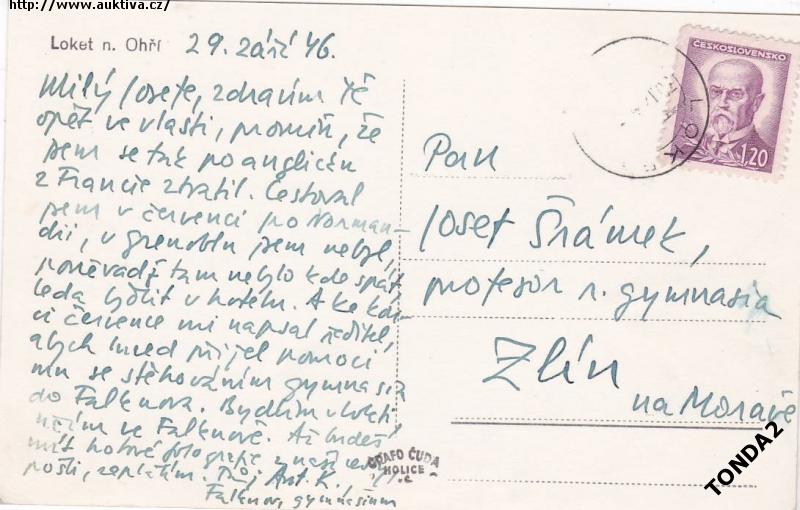 http://www.auktiva.cz/
Loket n. Ohří 29. září 46.
Milý Josefe, zdravím Tě
opět ve vlasti, promiň, že
jsem se tak po anglicku
z Francie ztratil. Cestoval
jsem v červenci po Norman-
dii, v Grenoblu jsem nebyl,
poněvadž tam nebylo kde spát,
leda v hotelu. A ke kon-
ci července mi napsal ředitel,
abych hned přijel pomoci
mu se stěhováním gymnasia
do Falknova. Bydlím v Lokti,
učím ve Falknově. Až budeš
mít hotové fotografie z naší cesty,
pošli, zaplatím. Tvůj Ant. K.,
Falknov, gymnasium
Pan
Josef Šrámek,
profesor r. gymnasia
Zlín
na Moravě
ČESKOSLOVENSKO
1,20
LOKE
GRAFO ČUDA
HOLICE
TONDA2